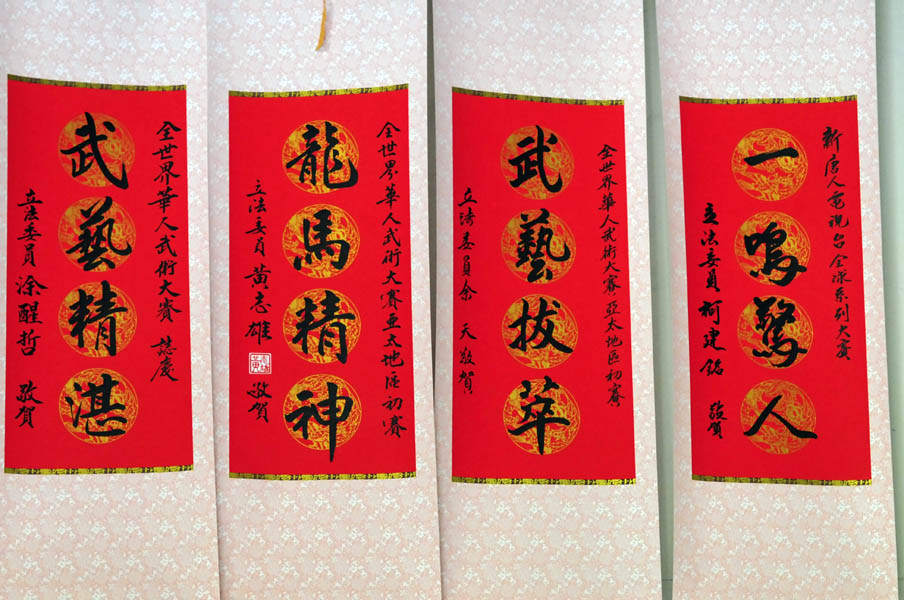 全世界華人武術大賽 誌慶
武藝精湛
立法委員 涂醒哲 敬賀
全世界華人武術大賽亞太地區初賽
龍馬精神
立法委員 黃志雄 敬賀
全世界華人武術大賽亞太地區初賽
武藝拔萃
立法委員余 天敬賀
新唐人電視台全球系列大賽
一鳴驚人
立法委員 柯建銘 敬賀